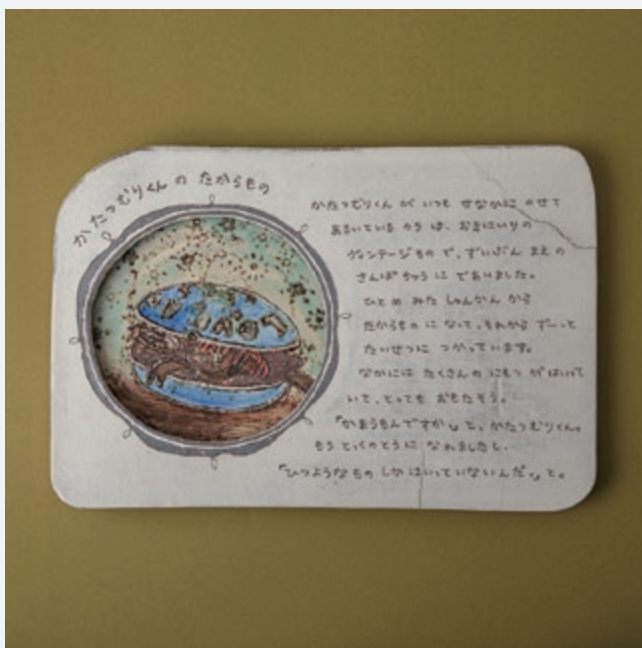 かたつむりくん の たからもの
かたつむりくん が いつも せなかに のせて
あるいている のう は、おきにいりの
ヴィンテージもの で、ずいぶん まえ の
さんぽ ちゅう に であいました。
ひとめ みた しゅんかん から
たからもの に なって、それから ずーっと
たいせつに つかっています。
なかには たくさんの にもつ が はいって
いて、とっても おもたそう。
「かまうもんですか。」と、かたつむりくん。
もう とっくのとうに なれましたし、
「ひつようなもの しか はいっていないんだ。」と。